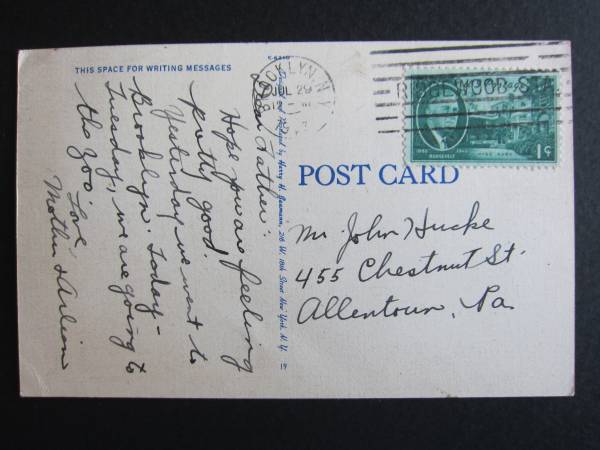 THIS SPACE FOR WRITING MESSAGES
Dear Father:
Hope you are feeling
pretty good.
Yesterday we went to
Brooklyn. Today -
Tuesday, we are going to
the zoo.
Love,
Mother & Arlien
Published by Harry H. Baumann, 216 W. 18th Street New York, N.Y.
BROOKLYN, N.Y.
JUL 29
12
RIDGEWOOD STA.
ROOSEVELT
HYDE PARK
1¢
POST CARD
Mr. John Hucke
455 Chestnut St.
Allentown, Pa.